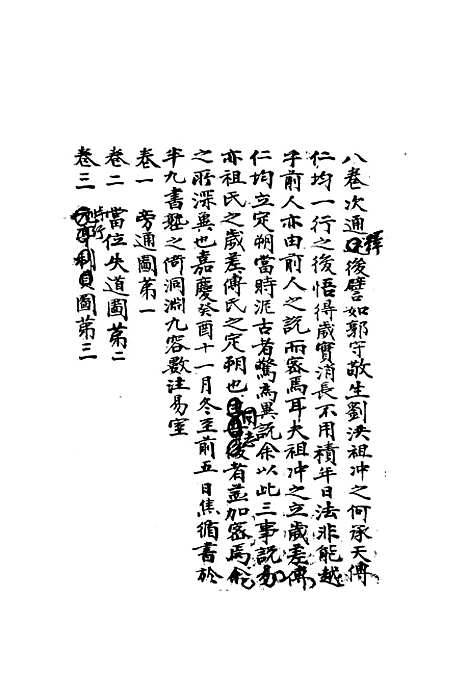 八卷次通釋後譬如郭守敬生劉洪祖冲之何承天傅
仁均一行之後悟得歲實消長不用積年日法非能越
乎前人亦由前人之說而密焉耳夫祖冲之立歲差傅
仁均立定朔當時泥古者驚為異說余以此三事說易
亦祖氏之歲差傅氏之定朔也同志後者益加密焉余
之所深冀也嘉慶癸酉十一月冬至前五日焦循書於
半九書塾之倚洞淵九容數注易室
卷一 旁通圖第一
卷二 當位失道圖第二
卷三 時行圖第三